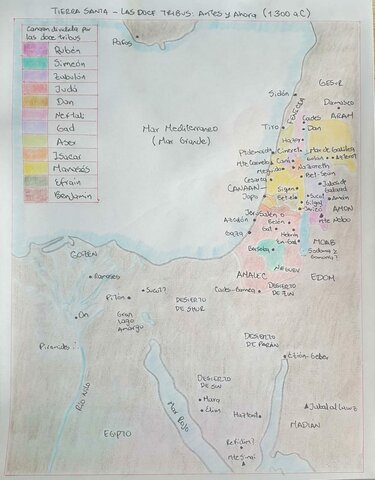 TIERRA SANTA - LAS DOCE TRIBUS: Antes y Ahora (1300 aC)
Canaan dividida por
las doce tribus
Rubén
Simeón
Zabulón
Judá
Dan
Neftalí
Gad
Aser
Isacar
Manasés
Efraín
Benjamin
Pafos
Mar Mediterraneo
(Mar Grande)
GESUR
Sidón
FENICIA
Damasco
ARAM
Tiro
Cades
Dan
Hazor
Ptolemaida
Cineret
Mar de Galilea
Mte Carmelo
Caná
Golan
Nazareth
Megido
Bet-Sean
Cesarea
CANAAN
Siquem
Jope
Betel
Sucot
Gilgal
Jericó
Amán
AMON
Mte Nebo
Jerusalen
Asdod
Belén
Gat
Gaza
Hebron
En-Gadi
Berseba
MOAB
Sodoma y
Gomorra?
NEGUEV
AMALEC
EDOM
Cades-Barnea
DESIERTO
DE ZIN
GOZEN
Rameses
Sucot?
Pitón
DESIERTO
DE SHUR
On
Gran
Lago
Amargo
Piramides
Rio Nilo
DESIERTO
DE PARÁN
Etzión-Geber
DESIERTO
DE SIN
Mara
Elim
Mar Rojo
Hazerot
Jabal al Lawz
MADIAN
EGIPTO
Refidim?
Mte Sinaí